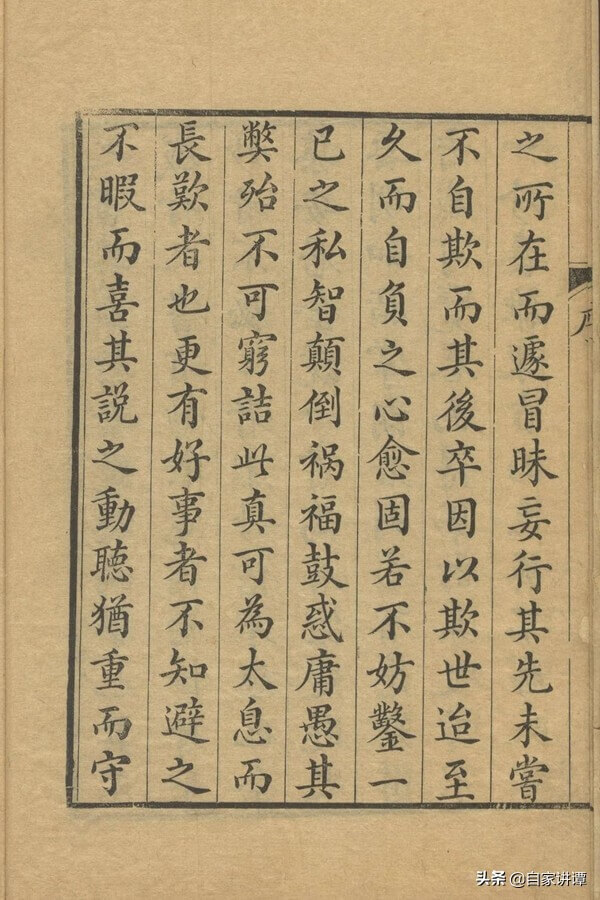 之所在而遽冒昧妄行其先未嘗
不自欺而其後卒因以欺世迨至
久而自負之心愈固若不妨鑿一
已之私智顛倒禍福鼓惑庸愚其
弊殆不可窮詰此真可為太息而
長歎者也更有好事者不知避之
不暇而喜其說之動聽猶重而守
序
头条 @自家讲谭